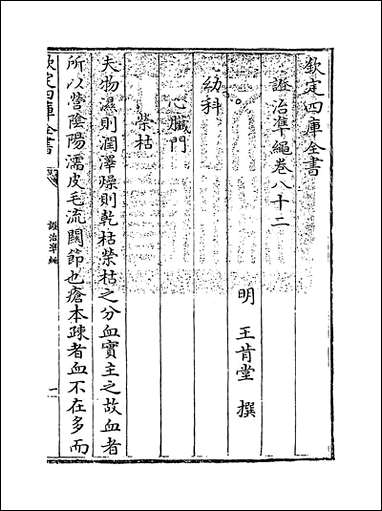 欽定四庫全書
證治準繩卷八十二
明 王肯堂 撰
幼科
心臟門
榮枯
夫物濕則潤澤燥則乾枯榮枯之分血實主之故血者
所以營陰陽濡皮毛流關節也瘡本疎者血不在多而
欽定四庫全書
證治準繩
一